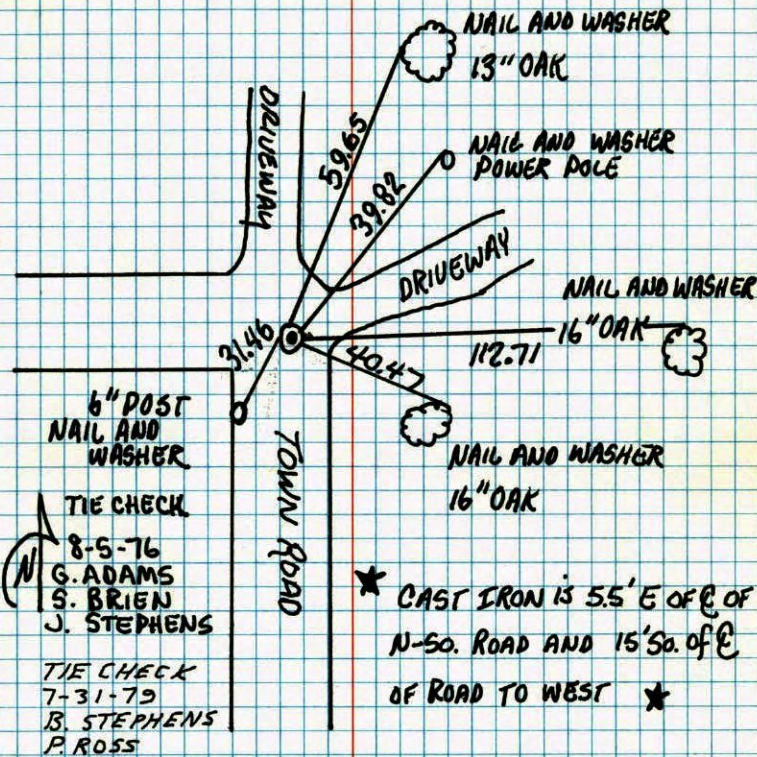 NAIL AND WASHER
13" OAK
DRIVEWAY
59.65
NAIL AND WASHER
POWER POLE
39.82
DRIVEWAY
NAIL AND WASHER
16" OAK
112.71
31.46
40.47
6" POST
NAIL AND
WASHER
NAIL AND WASHER
16" OAK
TOWN ROAD
TIE CHECK
N
8-5-76
G. ADAMS
S. BRIEN
J. STEPHENS
TIE CHECK
7-31-79
B. STEPHENS
P. ROSS
★ CAST IRON is 5.5' E OF ℄ OF
N-SO. ROAD AND 15' SO. of ℄
OF ROAD TO WEST ★